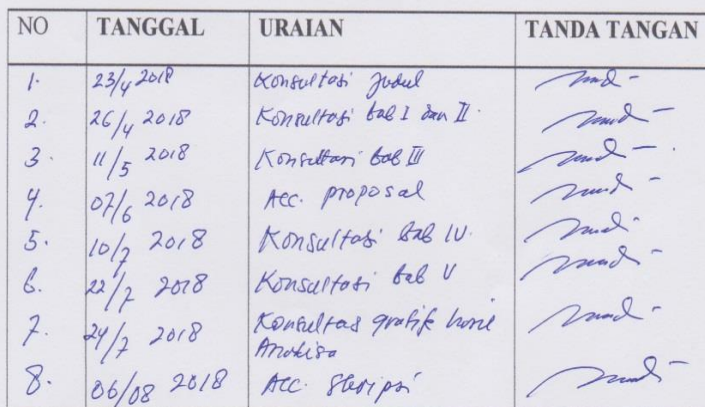 NO TANGGAL URAIAN TANDA TANGAN
1. 23/4 2018 Konsultasi Judul
2. 26/4 2018 Konsultasi bab I dan II.
3. 11/5 2018 Konsultasi bab III
4. 07/6 2018 Acc. proposal
5. 10/7 2018 Konsultasi bab IV.
6. 22/7 2018 Konsultasi bab V
7. 24/7 2018 Konsultasi grafik hasil
Analisa
8. 06/08 2018 Acc. Skripsi